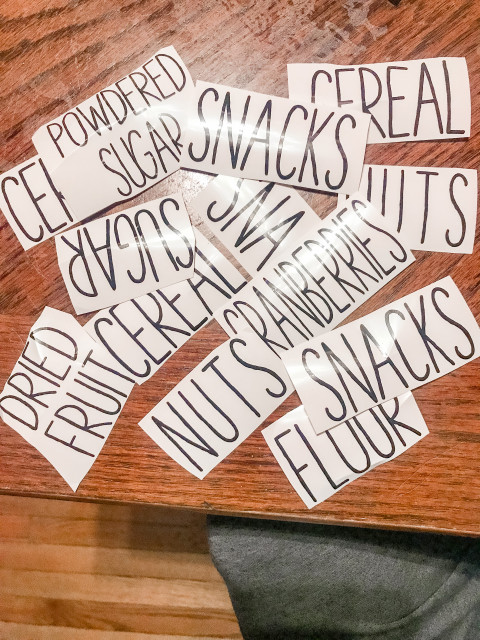 POWDERED
SUGAR
SNACKS
CEREAL
CER
NUTS
SNA
SUGAR
CRANBERRIES
CEREAL
DRIED
FRUIT
NUTS
SNACKS
FLOUR